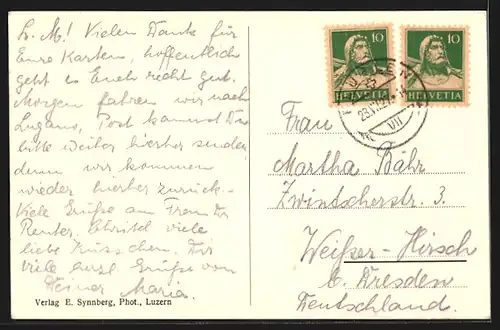 L. M! Vielen Dank für
Eure Karten, hoffentlich
geht es Euch recht gut.
Morgen fahren wir nach
Lugano, Post kannst Du
bitte weiter hierher senden,
denn wir kommen
wieder hierher zurück.-
Viele Grüße an Frau Dr
Christel viele
liebe Küsschen. Dir
viele herzl Grüße von
Deiner Maria.
Verlag E. Synnberg, Phot., Luzern
10
HELVETIA
10
HELVETIA
VII
Frau
Martha Bähr
Zwintscherstr. 3.
Weißer-Hirsch
b. Dresden
Deutschland.